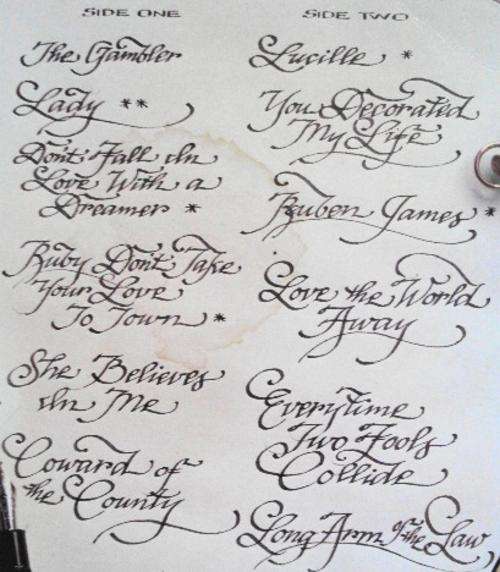 SIDE ONE
The Gambler
Lady **
Don't Fall In
Love With a
Dreamer *
Ruby Don't Take
Your Love
To Town *
She Believes
In Me
Coward of
the County
SIDE TWO
Lucille *
You Decorated
My Life
Reuben James *
Love the World
Away
Everytime
Two Fools
Collide
Long Arm of the Law